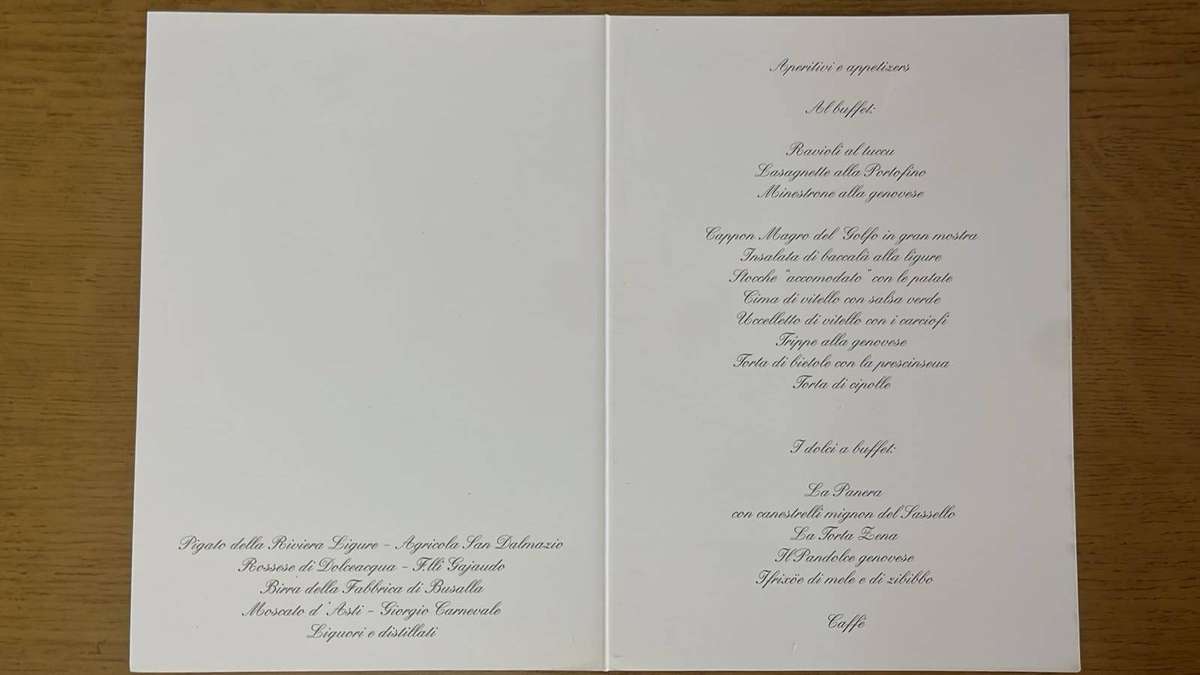 Pigato della Riviera Ligure - Agricola San Dalmazio
Rossese di Dolceacqua - F.lli Gajaudo
Birra della Fabbrica di Busalla
Moscato d'Asti - Giorgio Carnevale
Liquori e distillati
Aperitivi e appetizers
Al buffet:
Ravioli al tuccu
Lasagnette alla Portofino
Minestrone alla genovese
Cappon Magro del Golfo in gran mostra
Insalata di baccalà alla ligure
Stocche "accomodato" con le patate
Cima di vitello con salsa verde
Uccelletto di vitello con i carciofi
Trippe alla genovese
Torta di bietole con la prescinseua
Torta di cipolle
I dolci a buffet:
La Panera
con canestrelli mignon del Sassello
La Torta Zena
Il Pandolce genovese
I frixöe di mele e di zibibbo
Caffè